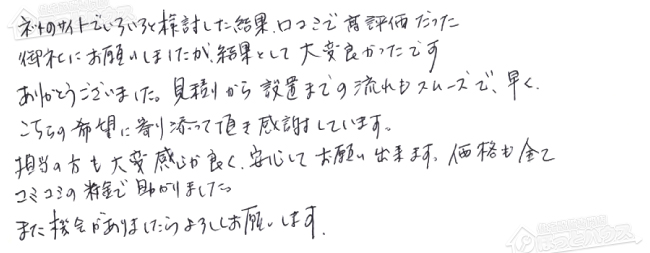 ネットのサイトでいろいろと検討した結果、口コミで高評価だった
御社にお願いしましたが、結果として大変良かったです
ありがとうございました。見積りから設置までの流れもスムーズで、早く、
こちらの希望に寄り添って頂き感謝しています。
担当の方も大変感じが良く、安心してお願い出来ます。価格も全て
コミコミの料金で助かりました。
また機会がありましたらよろしくお願いします。